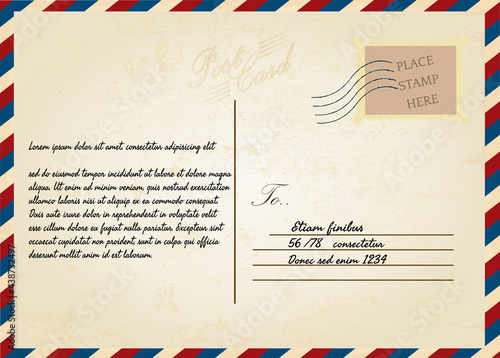 Post Card
PLACE
STAMP
HERE
Lorem ipsum dolor sit amet, consectetur adipiscing elit
sed do eiusmod tempor incididunt ut labore et dolore
magna aliqua. Ut enim ad minim veniam, quis nostrud
exercitation ullamco ut aliquip ex ea commodo consequat.
Duis aute irure dolor in reprehenderit in voluptate velit
esse cillum dolore eu fugiat nulla pariatur. Excepteur sint
occaecat cupidatat non proident, sunt in culpa qui officia
deserunt mollit anim id est laborum
To..
Etiam finibus
56 /78 consectetur
Donec sed enim 1234
Adobe Stock | #438732497